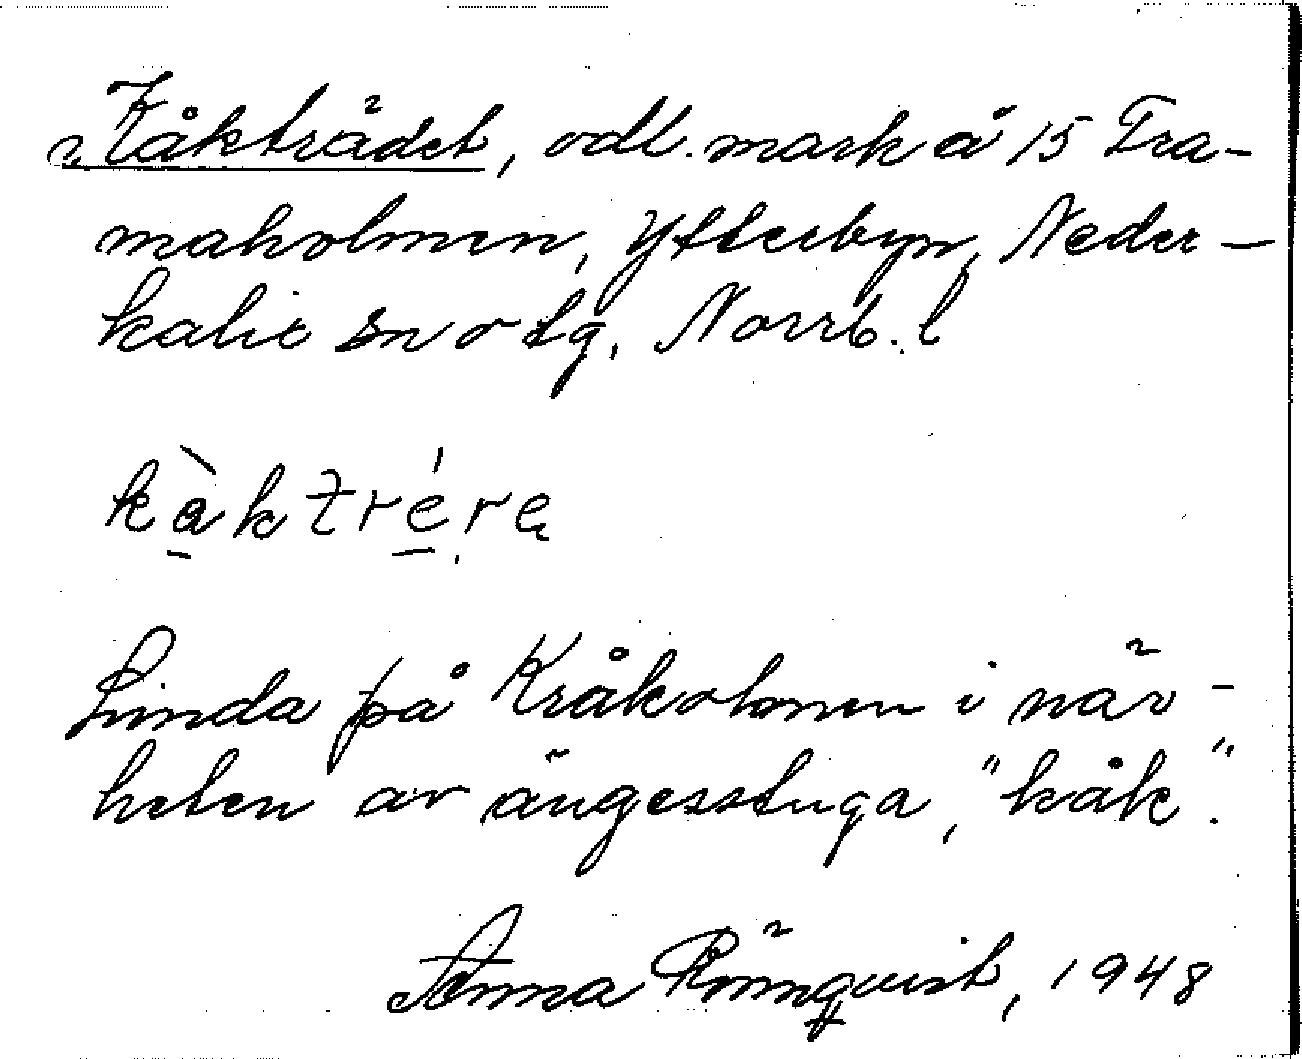 Kåkträdet, odl. mark å 15 Tra-
maholmen, Ytterbyn, Neder-
kalix sn o tg, Norrb. l
kàktrére
Linda på Kråkholmen i när-
heten av ängesstuga, "kåk".
Anna Rönnqvist, 1948